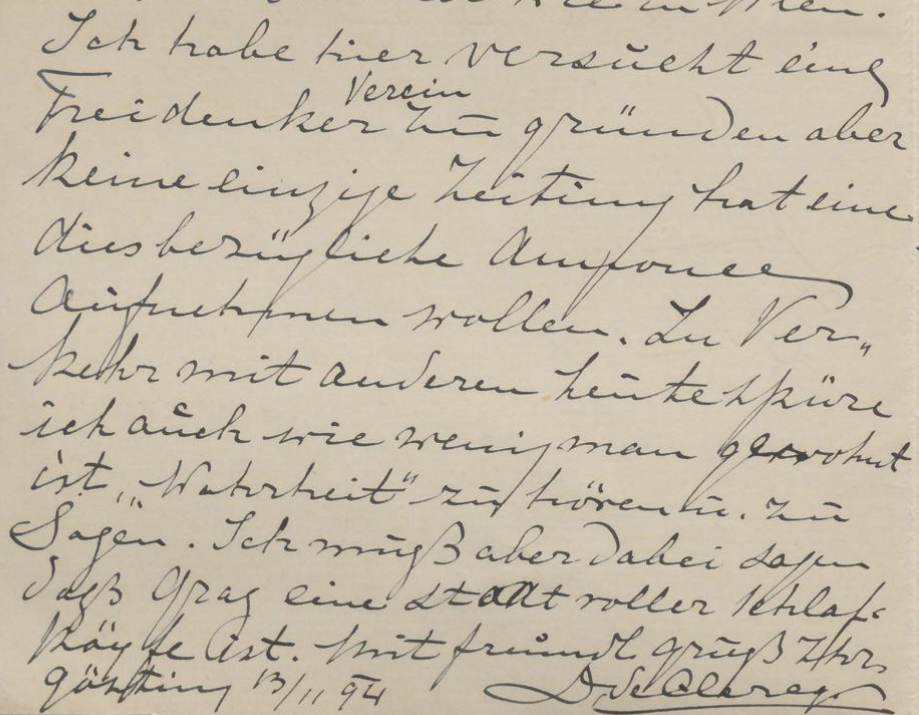 in Wien.
Ich habe hier versucht eine
Freidenker Verein zu gründen aber
keine einzige Zeitung hat eine
diesbezügliche Annonce
aufnehmen wollen. Zu Ver„
kehr mit anderen heute spüre
ich auch wie wenig man gewohnt
ist „Wahrheit“ zu hören u. zu
Sagen. Ich muß aber dabei sagen
daß Graz eine stadt voller schlaf=
köpfe ist. Mit freundl gruß Ihr
gösting 13/11 94